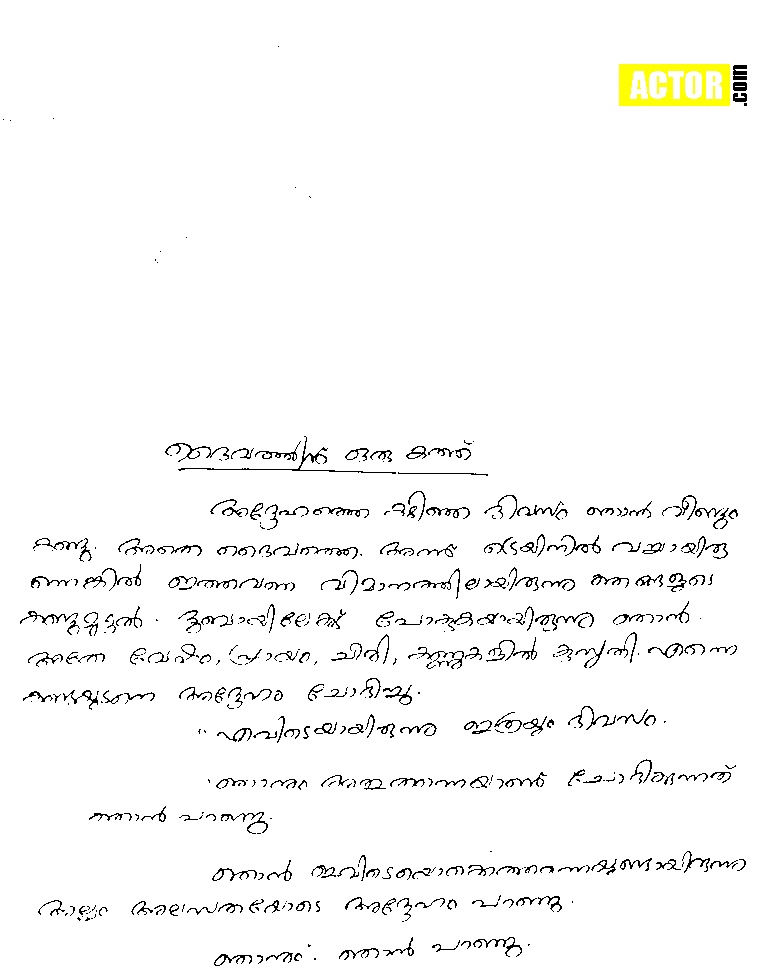 ACTOR.com
ദൈവത്തിന്റെ ഒരു കത്ത്
അദ്ദേഹത്തെ കഴിഞ്ഞ ദിവസം ഞാൻ വീണ്ടും
കണ്ടു. അതെ ദൈവത്തെ. അന്ന് ട്രെയിനിൽ വച്ചായിരു
ന്നെങ്കിൽ ഇത്തവണ വിമാനത്തിലായിരുന്നു ഞങ്ങളുടെ
കണ്ടുമുട്ടൽ. ദുബായിലേക്ക് പോകുകയായിരുന്നു ഞാൻ.
അതേ വേഷം, പ്രായം, ചിരി, കണ്ണുകളിൽ കുസൃതി. എന്നെ
കണ്ടയുടനെ അദ്ദേഹം ചോദിച്ചു.
"എവിടെയായിരുന്നു ഇത്രയും ദിവസം.
ഞാനും അതുതന്നെയാണ് ചോദിക്കുന്നത്
ഞാൻ പറഞ്ഞു.
ഞാൻ ഇവിടെയൊക്കെത്തന്നെയുണ്ടായിരുന്നു
അല്പം അലസതയോടെ അദ്ദേഹം പറഞ്ഞു.
ഞാനും. ഞാൻ പറഞ്ഞു.